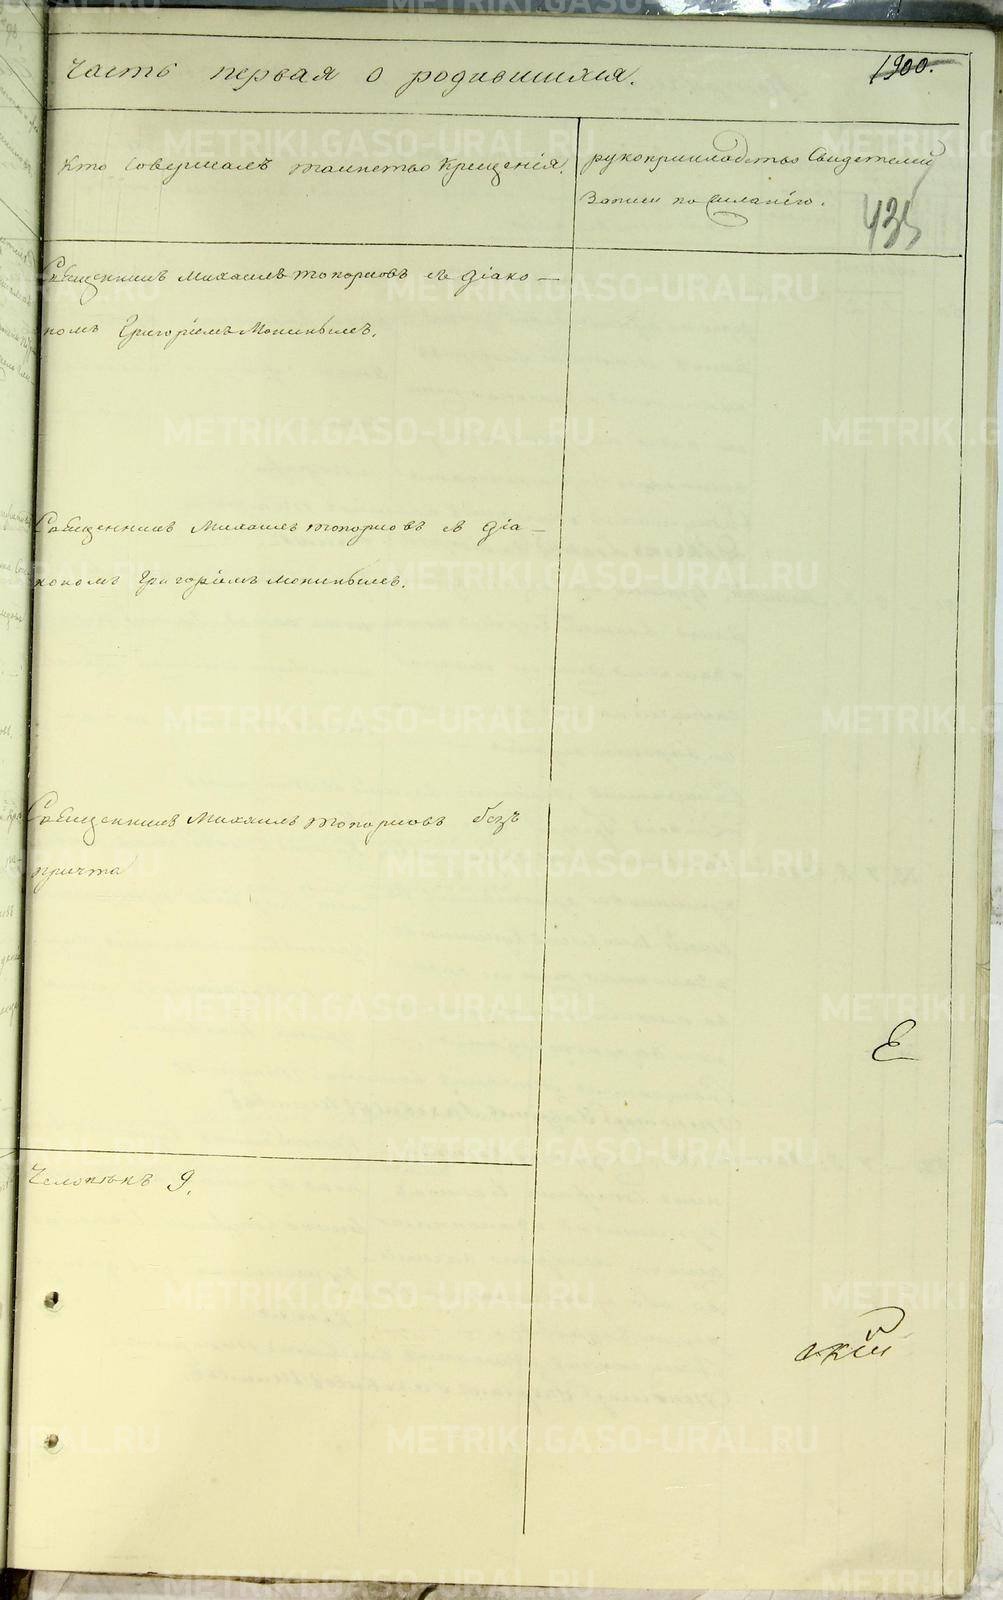 Часть первая о родившихся.
1900.
Кто совершалъ таинство крещенія.
рукоприкладство свидетелей
записи по желанію.
435
Священникъ Михаилъ Топорковъ съ діако-
номъ Григоріемъ
Священникъ Михаилъ Топорковъ съ діа-
кономъ Григоріемъ
Священникъ Михаилъ Топорковъ безъ
причта
Е
Человѣкъ 9.
скій
METRIKI.GASO-URAL.RU